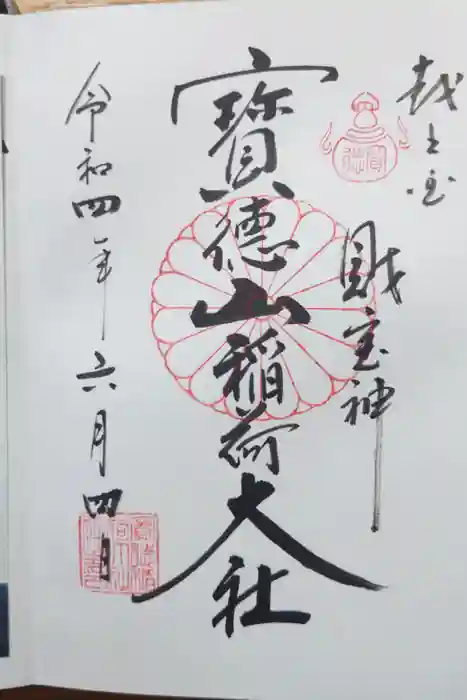 越之宝
財宝神
寳德山稲荷大社
令和四年六月四日